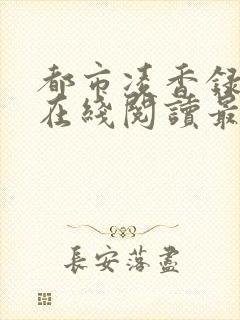 都市凌香録
在綫閱讀最
長安落盡